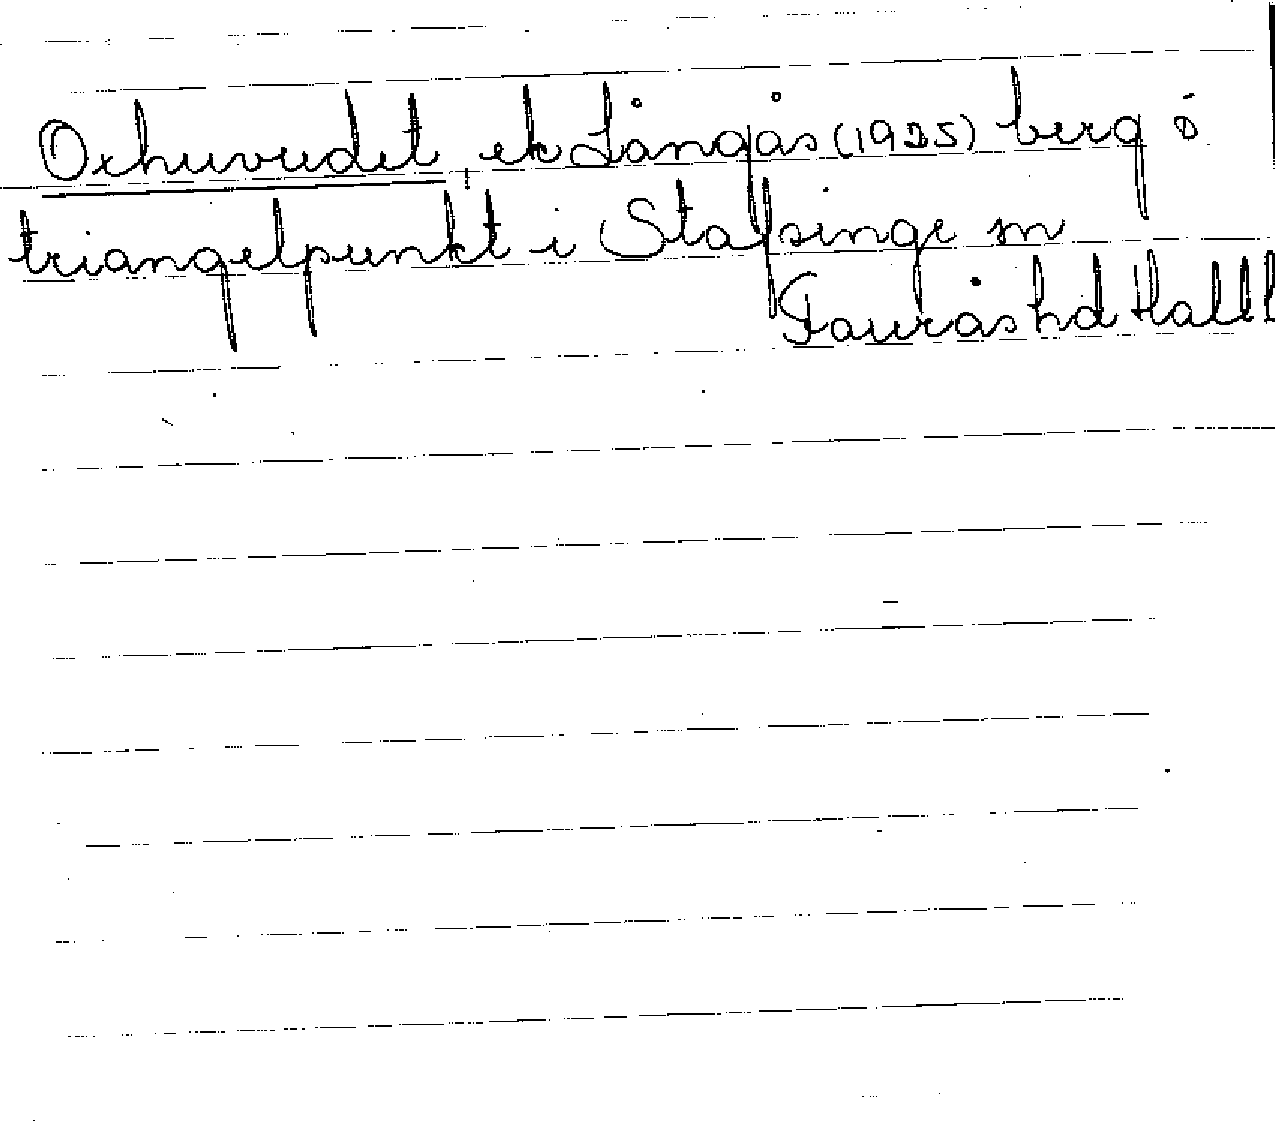 Oxhuvudet, ek Långås (1925) berg ö
triangelpunkt i Stafsinge sn
Faurås hd Hall